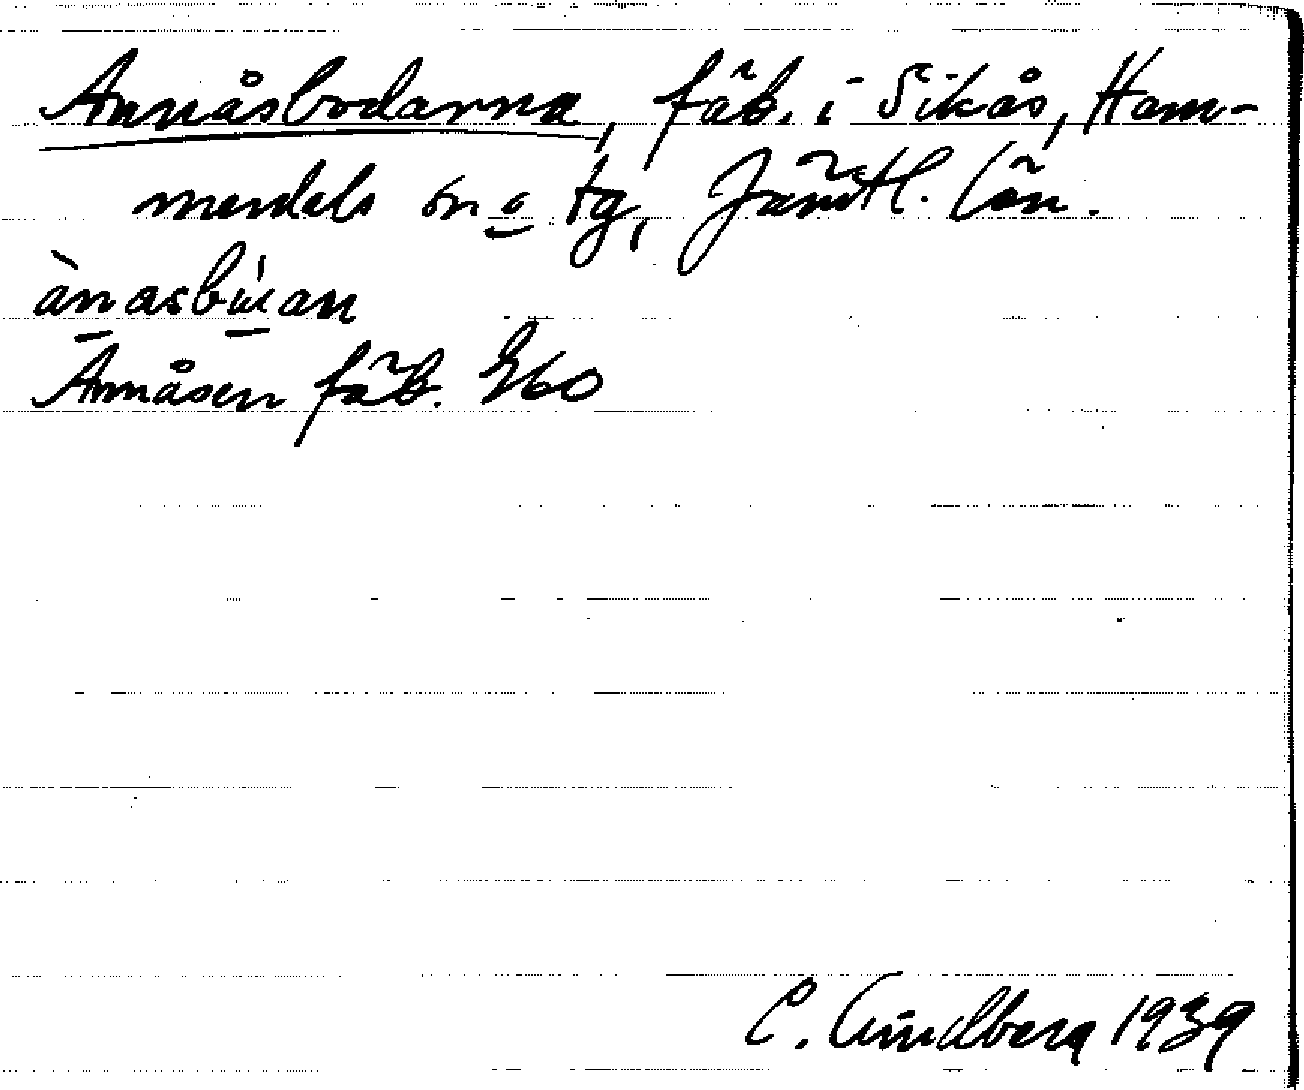 Annåsbodarna, fäb. i Sikås, Ham-
merdals sn o tg, Jämtl. län.
Annåsen fäb. G60
C. Lindberg 1939